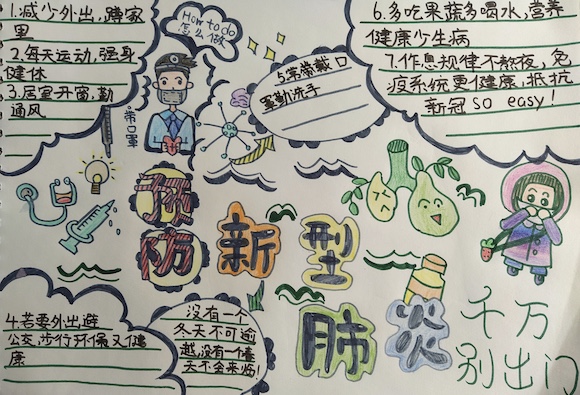 1.减少外出，蹲家
里
2.每天运动，强身
健体
3.居室开窗，勤
通风
How to do
怎么做
带口罩
5.常常戴口
罩勤洗手
6.多吃果蔬多喝水，营养
健康少生病
7.作息规律不熬夜，免
疫系统更健康，抵抗
新冠 so easy！
预防新型肺炎
4.若要外出避
公交，步行环保又健
康
没有一个
冬天不可逾
越，没有一个春
天不会来临！
千万
别出门